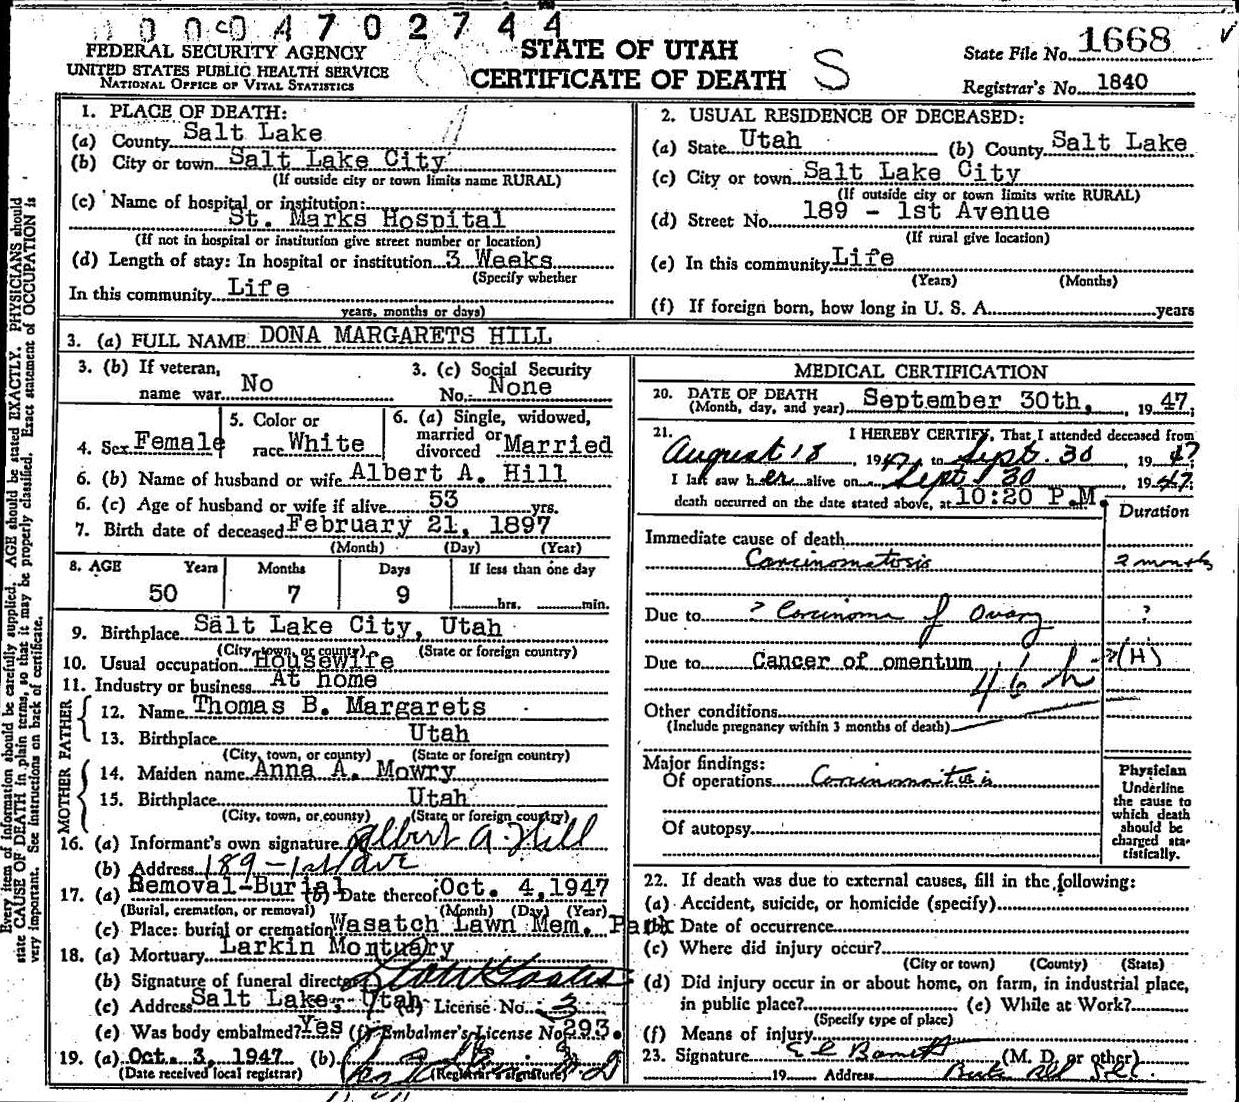 0004702744
FEDERAL SECURITY AGENCY
UNITED STATES PUBLIC HEALTH SERVICE
NATIONAL OFFICE OF VITAL STATISTICS
STATE OF UTAH
CERTIFICATE OF DEATH
S
State File No. 1668
Registrar's No. 1840
Every item of information should be carefully supplied. AGE should be stated EXACTLY. PHYSICIANS should
state CAUSE OF DEATH in plain terms, so that it may be properly classified. Exact statement of OCCUPATION is
very important. See instructions on back of certificate.
1. PLACE OF DEATH:
(a) County Salt Lake
(b) City or town Salt Lake City
(If outside city or town limits name RURAL)
(c) Name of hospital or institution:
St. Marks Hospital
(If not in hospital or institution give street number or location)
(d) Length of stay: In hospital or institution 3 Weeks
(Specify whether
In this community Life
years, months or days)
2. USUAL RESIDENCE OF DECEASED:
(a) State Utah (b) County Salt Lake
(c) City or town Salt Lake City
(If outside city or town limits write RURAL)
(d) Street No. 189 - 1st Avenue
(If rural give location)
(e) In this community Life
(Years) (Months)
(f) If foreign born, how long in U. S. A. years
3. (a) FULL NAME DONA MARGARETS HILL
3. (b) If veteran,
name war No
3. (c) Social Security
No. None
4. Sex Female
5. Color or
race White
6. (a) Single, widowed,
married or
divorced Married
6. (b) Name of husband or wife Albert A. Hill
6. (c) Age of husband or wife if alive 53 yrs.
7. Birth date of deceased February 21, 1897
(Month) (Day) (Year)
8. AGE Years Months Days If less than one day
50 7 9 hrs. min.
9. Birthplace Salt Lake City, Utah
(City, town, or county) (State or foreign country)
10. Usual occupation Housewife
11. Industry or business At home
FATHER
12. Name Thomas B. Margarets
13. Birthplace Utah
(City, town, or county) (State or foreign country)
MOTHER
14. Maiden name Anna A. Mowry
15. Birthplace Utah
(City, town, or county) (State or foreign country)
16. (a) Informant's own signature Albert A. Hill
(b) Address 189 - 1st Ave
17. (a) Removal-Burial (b) Date thereof Oct. 4, 1947
(Burial, cremation, or removal) (Month) (Day) (Year)
(c) Place: burial or cremation Wasatch Lawn Mem. Park
18. (a) Mortuary Larkin Montuary
(b) Signature of funeral director
(c) Address Salt Lake, Utah (d) License No. 3
(e) Was body embalmed? Yes (f) Embalmer's License No. 293.
19. (a) Oct. 3, 1947 (b)
(Date received local registrar) (Registrar's signature)
MEDICAL CERTIFICATION
20. DATE OF DEATH
(Month, day, and year) September 30th, , 1947;
21. I HEREBY CERTIFY, That I attended deceased from
August 18, 1947, to Sept. 30, 1947
I last saw her alive on Sept 30, 1947;
death occurred on the date stated above, at 10:20 P.M.
Duration
Immediate cause of death
Carcinomatosis 2 months
Due to ? Carcinoma of Ovary ?
Due to Cancer of omentum ?(H)
46 h
Other conditions
(Include pregnancy within 3 months of death)
Major findings:
Of operations
Of autopsy
Physician
Underline
the cause to
which death
should be
charged sta-
tistically.
22. If death was due to external causes, fill in the following:
(a) Accident, suicide, or homicide (specify)
(b) Date of occurrence
(c) Where did injury occur?
(City or town) (County) (State)
(d) Did injury occur in or about home, on farm, in industrial place,
in public place? (e) While at Work?
(Specify type of place)
(f) Means of injury
23. Signature (M. D. or other)
19 Address